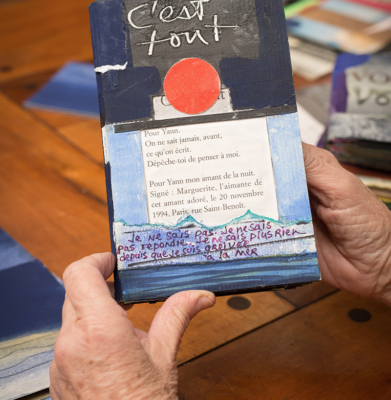 c'est
tout
Pour Yann.
On ne sait jamais, avant,
ce qu'on écrit.
Dépêche-toi de penser à moi.
Pour Yann mon amant de la nuit.
Signé : Marguerite, l'aimante de
cet amant adoré, le 20 novembre
1994, Paris, rue Saint-Benoît.
Je ne sais pas. Je ne sais
pas repondre. Je ne sais plus rien
depuis que je suis arrivée
à la mer